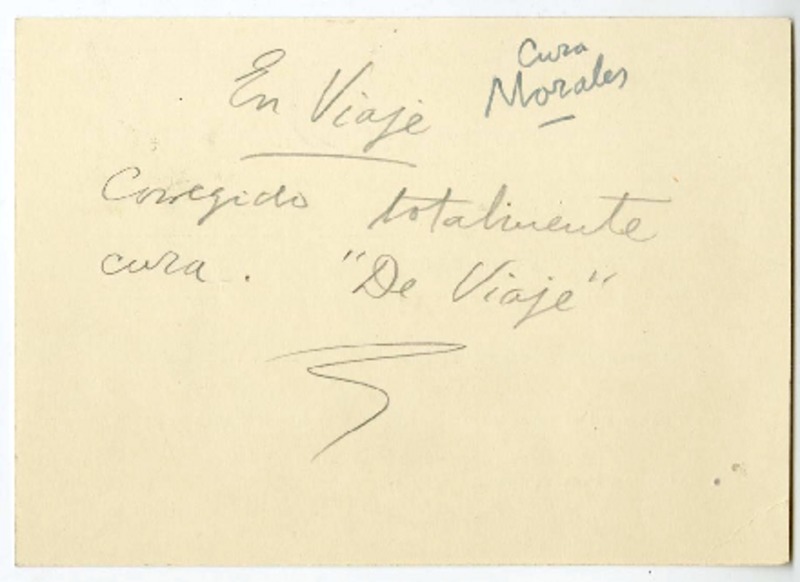 Cura
Morales
En Viaje
Corregido totalmente
cura. "De Viaje"